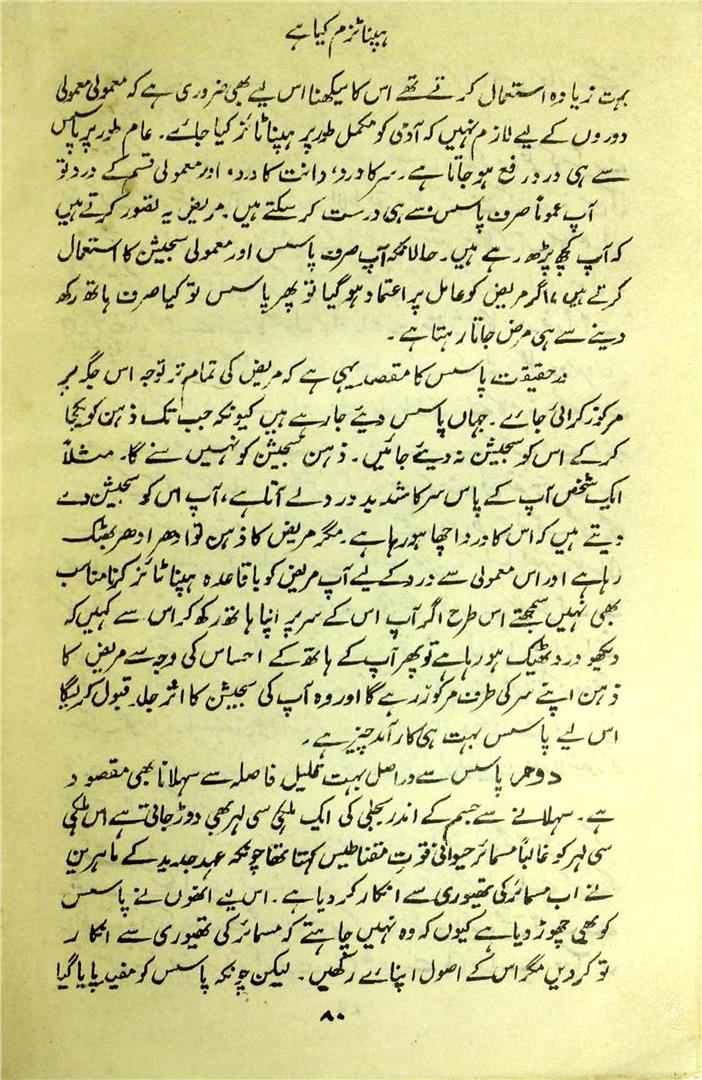 ہپناٹزم کیا ہے
بہت زیادہ استعمال کرتے تھے اس کا سیکھنا اس لیے بھی ضروری ہے کہ معمولی معمولی
دوروں کے لیے لازم نہیں کہ آدمی کو مکمل طور پر ہپناٹائز کیا جائے۔ عام طور پر پاسس
سے ہی درد رفع ہو جاتا ہے۔ سر کا درد، دانت کا درد، اور معمولی قسم کے درد تو
آپ عموماً صرف پاسس سے ہی درست کر سکتے ہیں۔ مریض یہ تصور کرتے ہیں
کہ آپ کچھ پڑھ رہے ہیں۔ حالانکہ آپ صرف پاسس اور معمولی سجیشن کا استعمال
کرتے ہیں، اگر مریض کو عامل پر اعتماد ہو گیا تو پھر پاسس تو کیا صرف ہاتھ رکھ
دینے سے ہی مرض جاتا رہتا ہے۔
در حقیقت پاسس کا مقصد یہی ہے کہ مریض کی تمام تر توجہ اس جگہ پر
مرکوز کرائی جائے۔ جہاں پاسس دیئے جا رہے ہیں کیونکہ جب تک ذہن کو یکجا
کر کے اس کو سجیشن نہ دیئے جائیں۔ ذہن سجیشن کو نہیں سنے گا۔ مثلاً
ایک شخص آپ کے پاس سر کا شدید درد لے آتا ہے، آپ اس کو سجیشن دے
دیتے ہیں کہ اس کا درد اچھا ہو رہا ہے۔ مگر مریض کا ذہن تو ادھر ادھر بھٹک
رہا ہے اور اس معمولی سے درد کے لیے آپ مریض کو باقاعدہ ہپناٹائز کرنا مناسب
بھی نہیں سمجھتے اس طرح اگر آپ اس کے سر پر اپنا ہاتھ رکھ کر اس سے کہیں کہ
دیکھو درد ٹھیک ہو رہا ہے تو پھر آپ کے ہاتھ کے احساس کی وجہ سے مریض کا
ذہن اپنے سر کی طرف مرکوز رہے گا اور وہ آپ کی سجیشن کا اثر جلد قبول کریگا
اس لیے پاسس بہت ہی کارآمد چیز ہے۔
دوم پاسس سے دراصل بہت قلیل فاصلہ سے سہلانا بھی مقصود
ہے۔ سہلانے سے جسم کے اندر بجلی کی ایک ہلکی سی لہر بھی دوڑ جاتی ہے اس ہلکی
سی لہر کو غالباً مسمائر حیوانی قوت مقناطیس کہتا تھا چونکہ عہد جدید کے ماہرین
نے اب مسمائر کی تھیوری سے انکار کر دیا ہے۔ اس لیے انھوں نے پاسس
کو بھی چھوڑ دیا ہے کیوں کہ وہ نہیں چاہتے کہ مسمائر کی تھیوری سے انکار
تو کر دیں مگر اس کے اصول اپنائے رکھیں۔ لیکن چونکہ پاسس کو مفید پایا گیا
۸۰